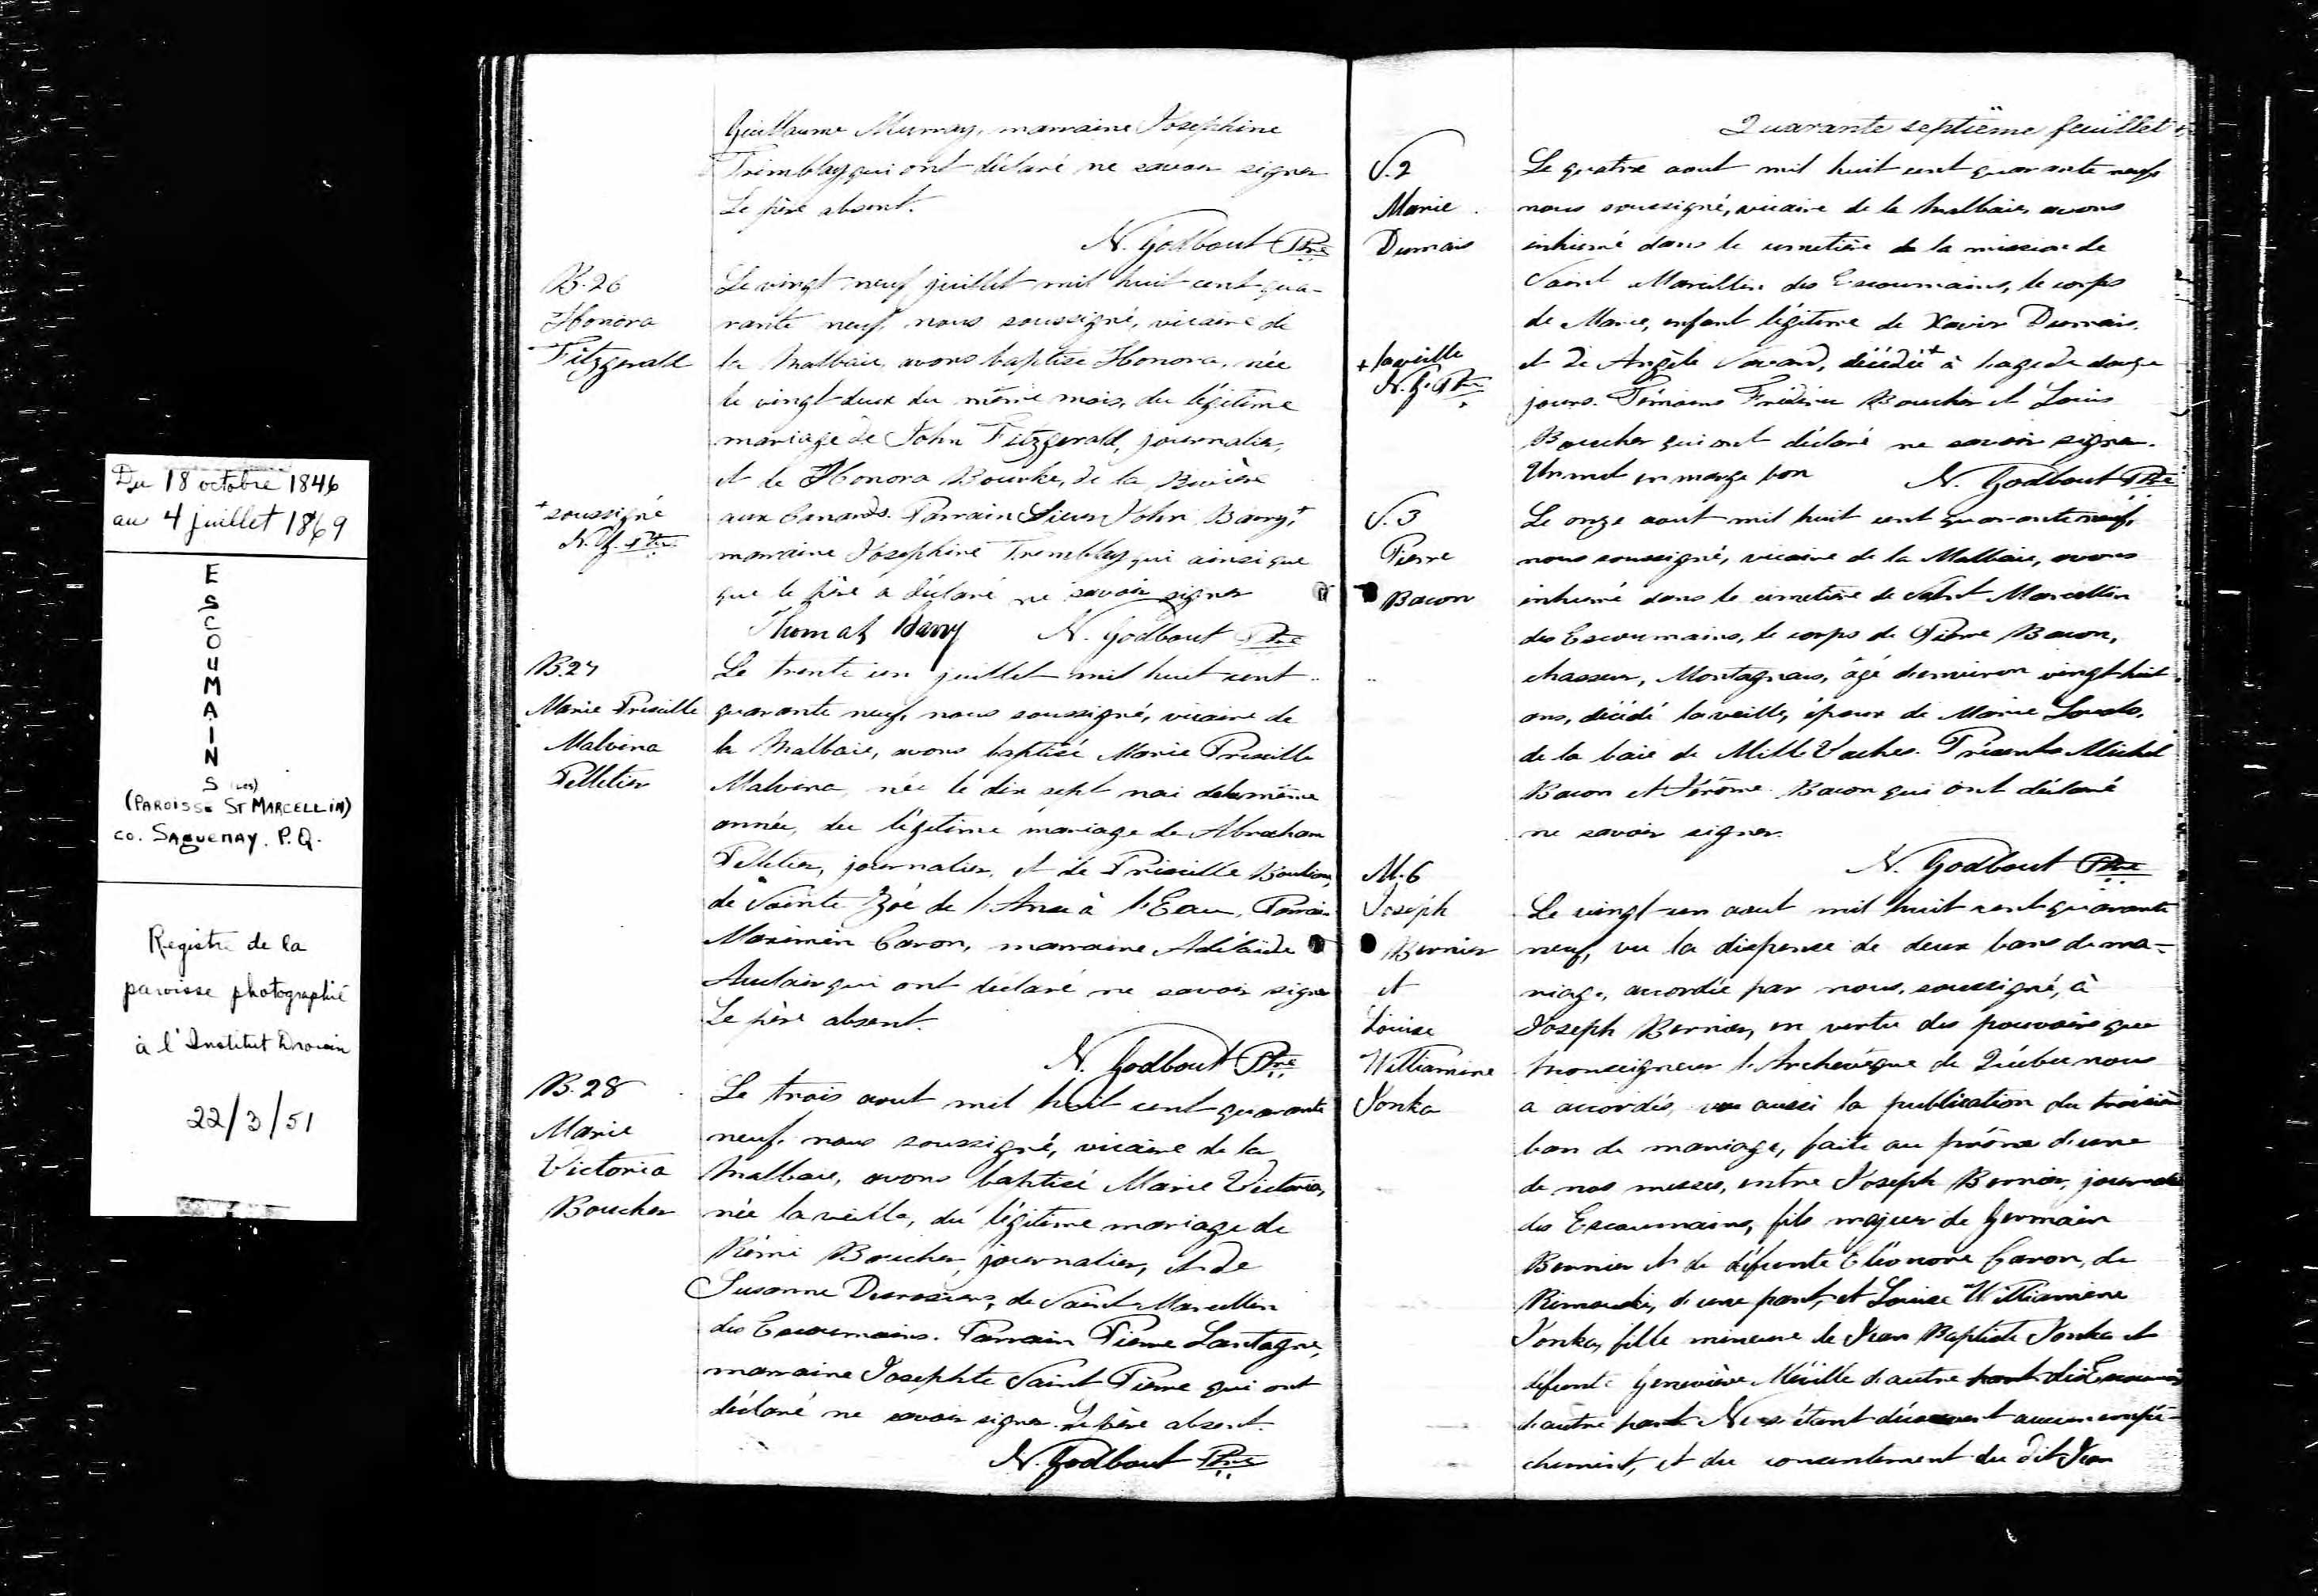 Du 18 octobre 1846
au 4 juillet 1869
E
S
C
O
U
M
A
I
N
S (Les)
(PAROISSE ST MARCELLIN)
co. SAGUENAY. P.Q.
Registre de la
paroisse photographié
à l'Institut Drouin
22/3/51
Guillaume Murray, marraine Josephine
Tremblay qui ont déclaré ne savoir signer
Le père absent.
N. Godbout Ptre
B.26
Honora
Fitzgerald
Le vingt neuf juillet mil huit cent qua-
rante neuf, nous soussigné, vicaire de
la Malbaie, avons baptisé Honora, née
le vingt-deux du même mois, du légitime
mariage de John Fitzgerald, journalier,
et de Honora Bourke, de la Rivière
aux Canards. Parrain Sieur John Barry,+
marraine Josephine Tremblay qui ainsi que
que le père a déclaré ne savoir signer
+ soussigné
N. G. Ptre
Thomas Barry N. Godbout Ptre
B.27
Marie Priscille
Malvina
Pelletier
Le trente un juillet mil huit cent
quarante neuf, nous soussigné, vicaire de
la Malbaie, avons baptisé Marie Priscille
Malvina, née le dix sept mai de la même
année, du légitime mariage de Abraham
Pelletier, journalier, et de Priscille
de Sainte Zoé de l'Anse à l'Eau, Parrain
Maximin Caron, marraine Adélaïde
Auclair qui ont déclaré ne savoir signer
Le père absent.
N. Godbout Ptre
B.28
Marie
Victoria
Boucher
Le trois aout mil huit cent quarante
neuf, nous soussigné, vicaire de la
Malbaie, avons baptisé Marie Victoria,
née la veille, du légitime mariage de
Rémi Boucher, journalier, et de
Susanne Desrosiers, de Saint Marcellin
des Escoumains. Parrain Pierre Lantagne,
marraine Josephte Saint Pierre qui ont
déclaré ne savoir signer. Le père absent.
N. Godbout Ptre
Quarante septième feuillet
S.2
Marie
Dumais
Le quatre aout mil huit cent quarante neuf
nous soussigné, vicaire de la Malbaie, avons
inhumé dans le cimetière de la mission de
Saint Marcellin des Escoumains, le corps
de Marie, enfant légitime de Xavier Dumais,
et de Angèle Savard, décédée+ à l'age de douze
jours. Témoins Frédéric Boucher et Louis
Boucher qui ont déclaré ne savoir signer.
Un mot en marge bon N. Godbout Ptre
+ la veille
N. G. Ptre
S.3
Pierre
Bacon
Le onze aout mil huit cent quarante neuf,
nous soussigné, vicaire de la Malbaie, avons
inhumé dans le cimetière de Saint Marcellin
des Escoumains, le corps de Pierre Bacon,
chasseur, Montagnais, âgé d'environ vingt-huit
ans, décédé la veille, époux de Marie
de la baie de Mille Vaches. Présents Michel
Bacon et Jérôme Bacon qui ont déclaré
ne savoir signer.
N. Godbout Ptre
M.6
Joseph
Bernier
et
Louise
Williamine
Jonka
Le vingt-un aout mil huit cent quarante
neuf, vu la dispense de deux bans de ma-
riage, accordée par nous, soussigné, à
Joseph Bernier, en vertu des pouvoirs que
Monseigneur l'Archevêque de Québec nous
a accordés, vu aussi la publication du troisième
ban de mariage, faite au prône d'une
de nos messes, entre Joseph Bernier, journalier
des Escoumains, fils majeur de Germain
Bernier et de défunte Eléonore Caron, de
Rimouski, d'une part, et Louise Williamine
Jonka, fille mineure de Jean Baptiste Jonka et
défunte Geneviève d'autre part des Escoumains
d'autre part Ne s'étant découvert aucun empê-
chement, et du consentement du dit Jean